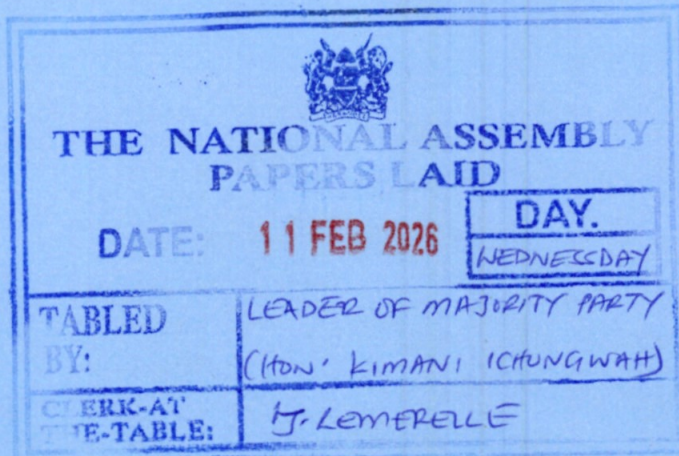 THE NATIONAL ASSEMBLY
PAPERS LAID
DATE: 11 FEB 2026
DAY.
WEDNESDAY
TABLED BY:
LEADER OF MAJORITY PARTY
(HON' KIMANI ICHUNGWAH)
CLERK-AT THE-TABLE:
J. LEMERELLE